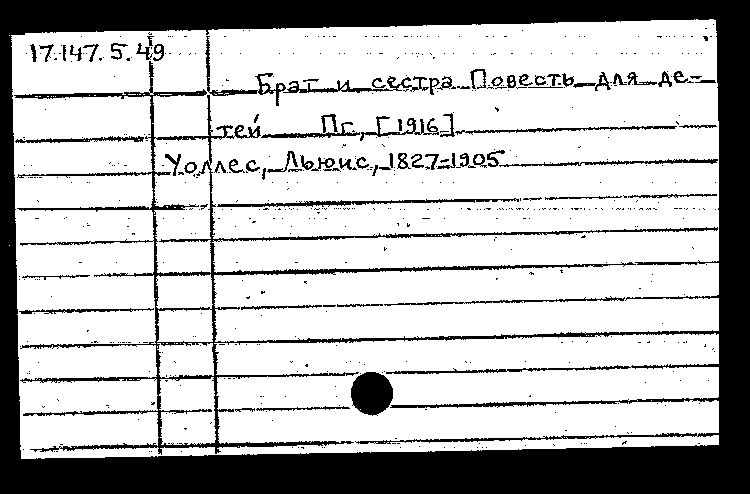 17.147.5.49
Брат и сестра Повесть для де-
тей Пг., [1916]
Уоллес, Льюис, 1827-1905